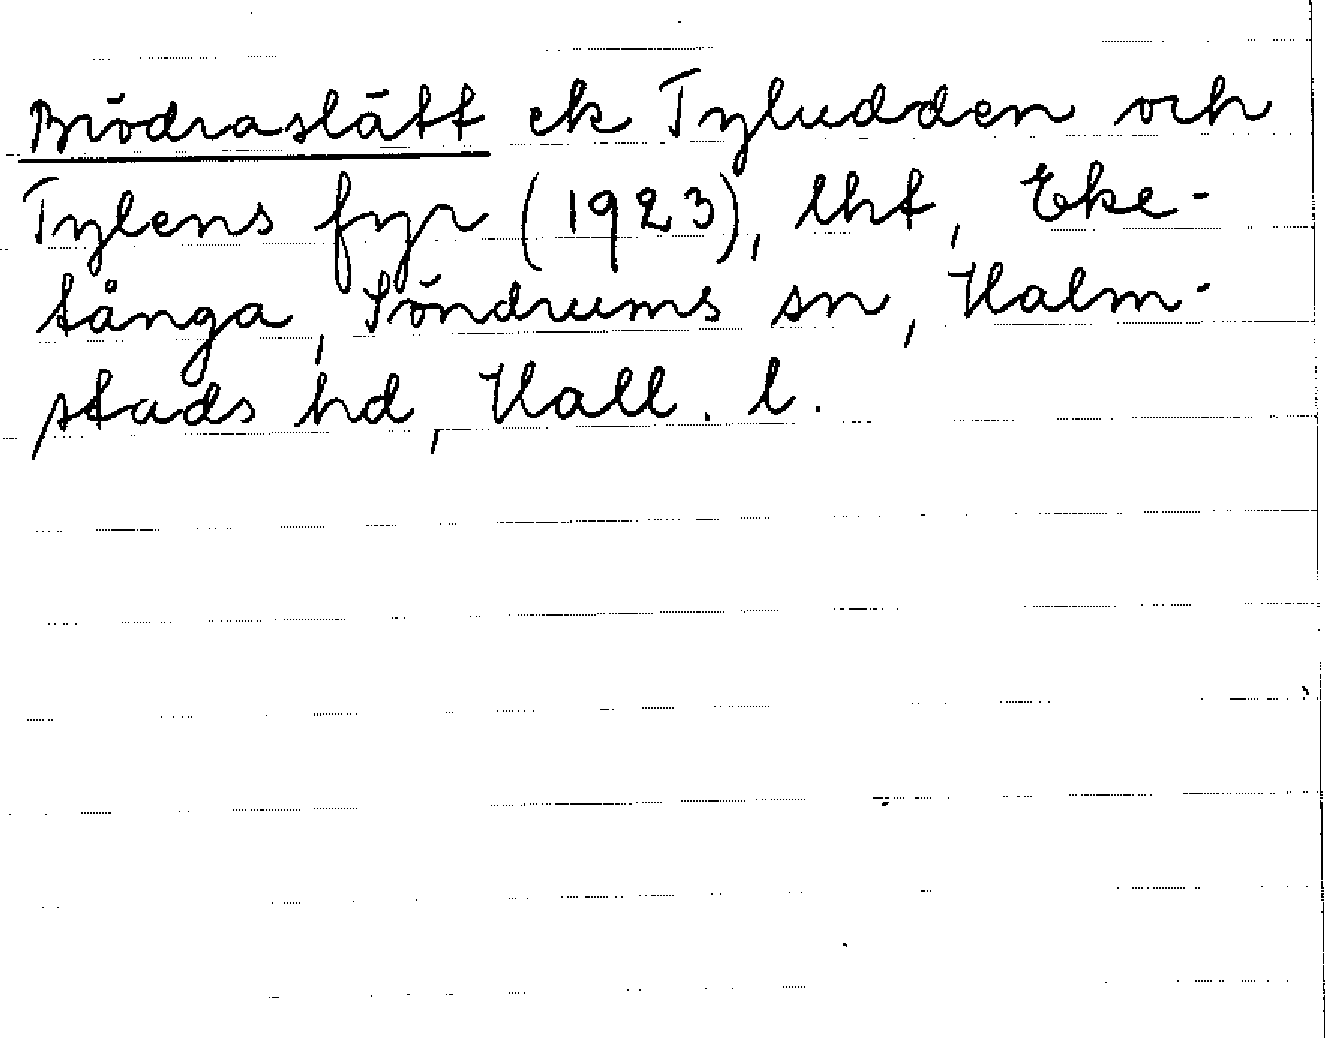 Brödraslätt ek Tyludden och
Tylens fyr (1923), lht, Eke-
tånga, Söndrums sn, Halm-
stads hd, Hall. l.